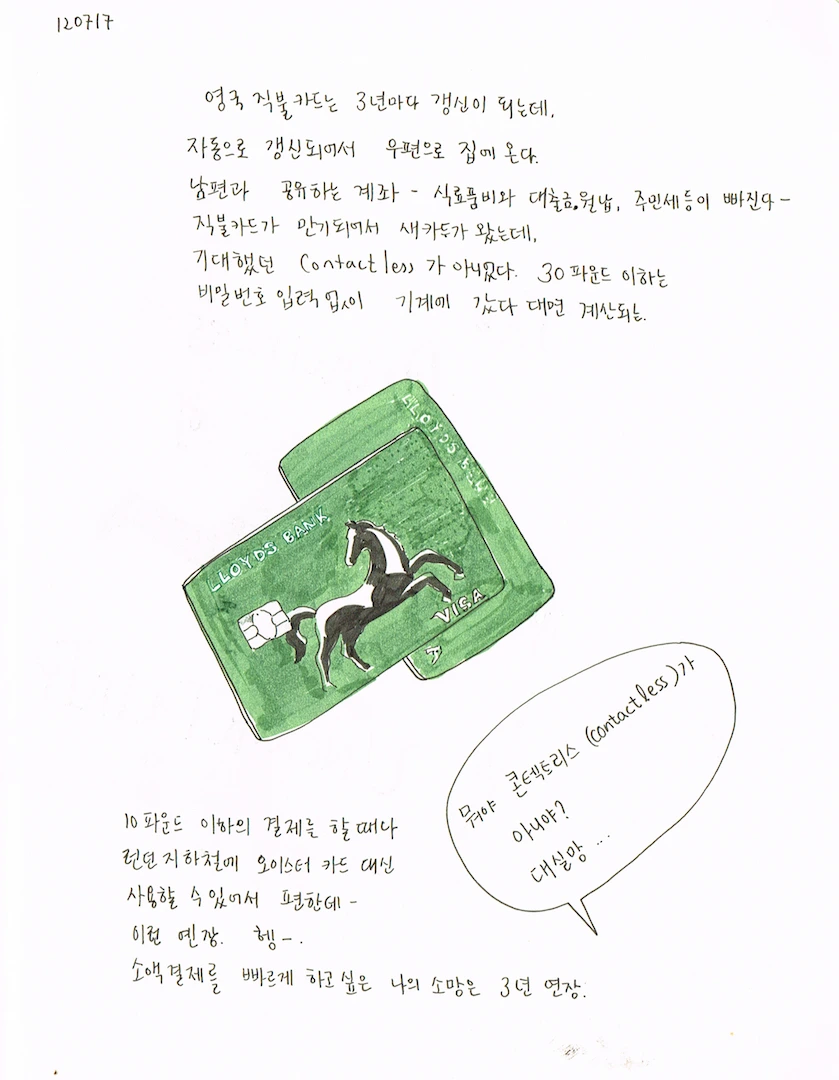 120717
영국 직불카드는 3년마다 갱신이 되는데,
자동으로 갱신되어서 우편으로 집에 온다.
남편과 공유하는 계좌 - 식료품비와 대출금.월납, 주민세등이 빠진다 -
직불카드가 만기되어서 새카드가 왔는데,
기대했던 Contactless 가 아니었다. 30파운드 이하는
비밀번호 입력없이 기계에 갔다 대면 계산되는.
LLOYDS BANK
LLOYDS BANK
VISA
뭐야 콘텍트리스 (contactless)가
아니야?
대실망 ...
10파운드 이하의 결제를 할때나
런던지하철에 오이스터 카드 대신
사용할 수 있어서 편한데 -
이런 옌장. 헹-.
소액결제를 빠르게 하고싶은 나의 소망은 3년 연장.